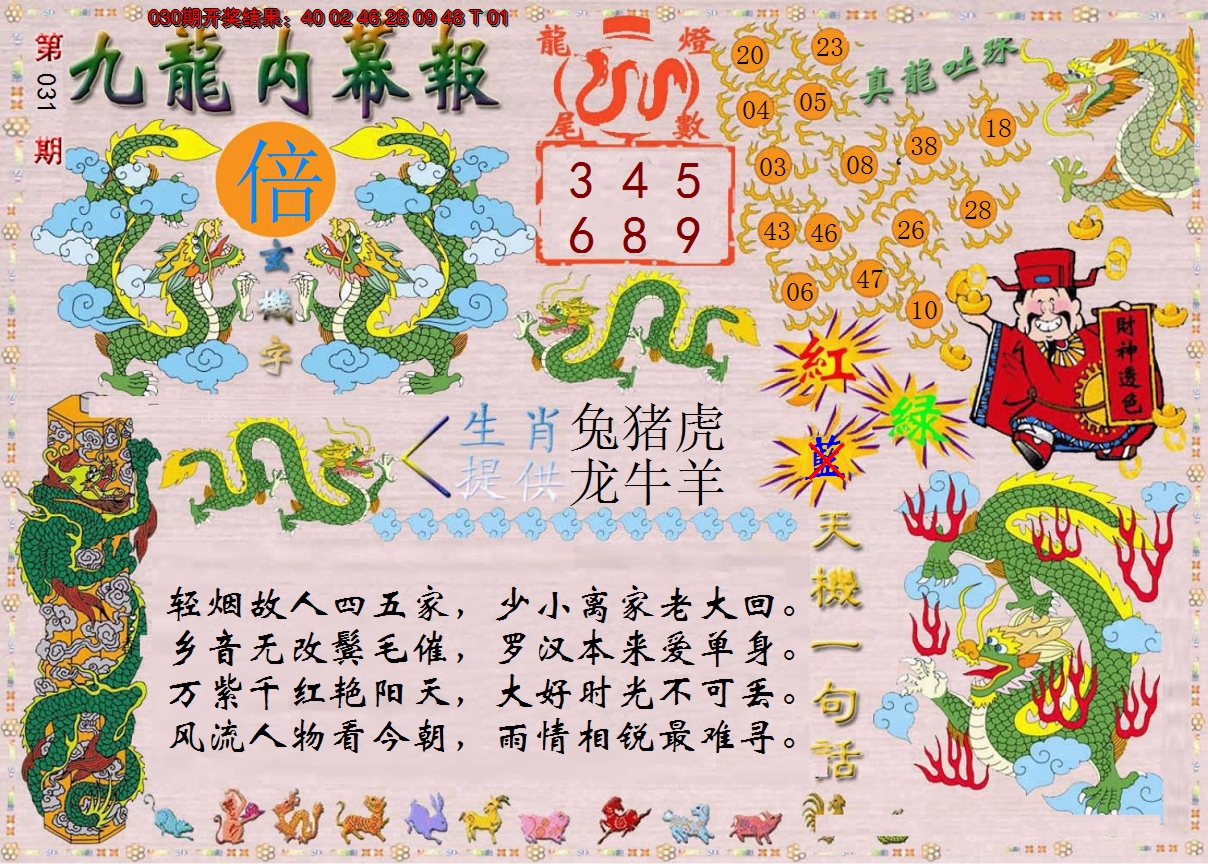 030期开奖结果：40 02 46 28 09 48 T 01
第
031
期
九龍内幕報
倍
玄
機
字
龍 燈
尾 數
3 4 5
6 8 9
真龍吐珠
20 23
04 05
03 08 38 18
43 46 26 28
06 47 10
財神透色
紅
綠
藍
生肖 兔猪虎
提供 龙牛羊
天機一句話
轻烟故人四五家，少小离家老大回。
乡音无改鬓毛催，罗汉本来爱单身。
万紫千红艳阳天，大好时光不可丢。
风流人物看今朝，雨情相锐最难寻。